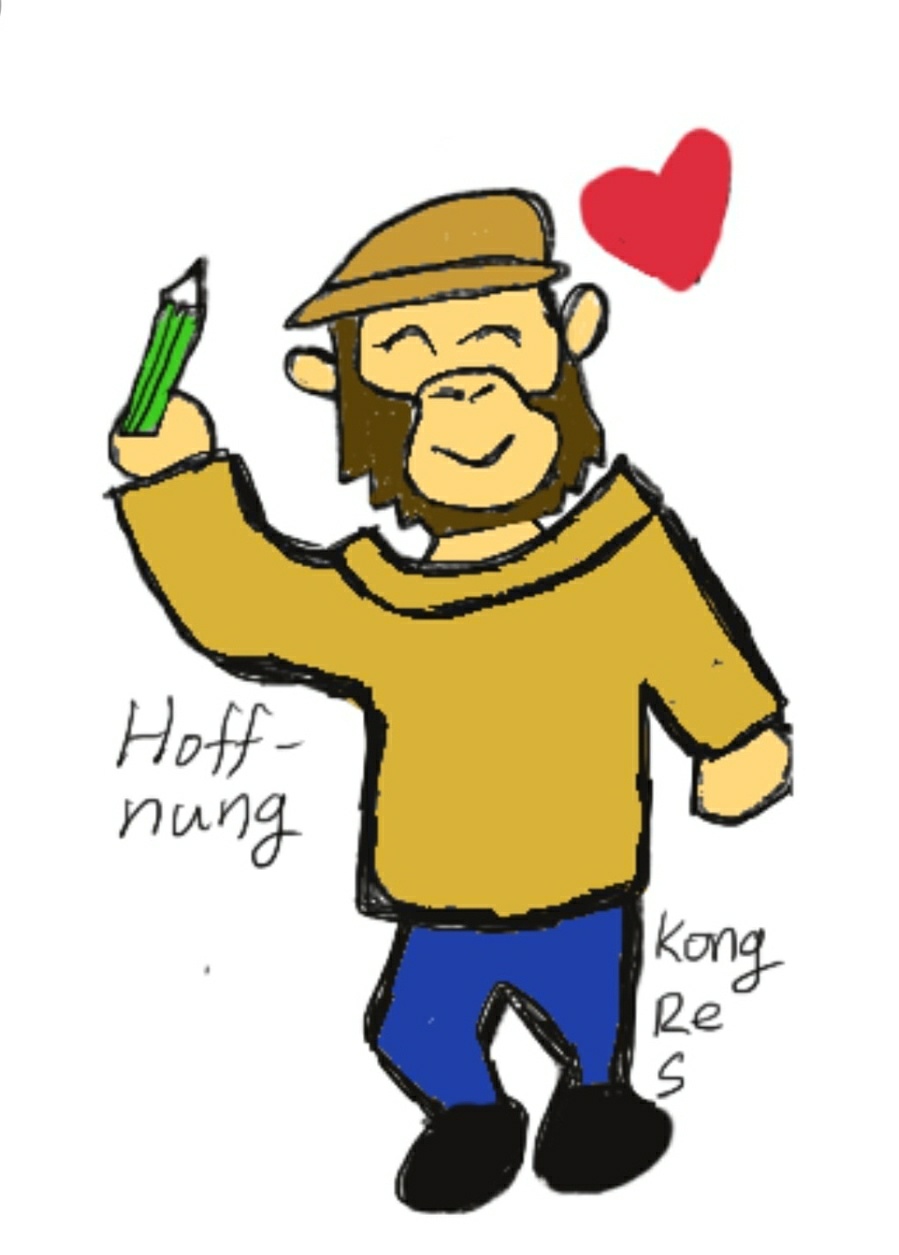 Hoff-
nung
Kong
Re
S